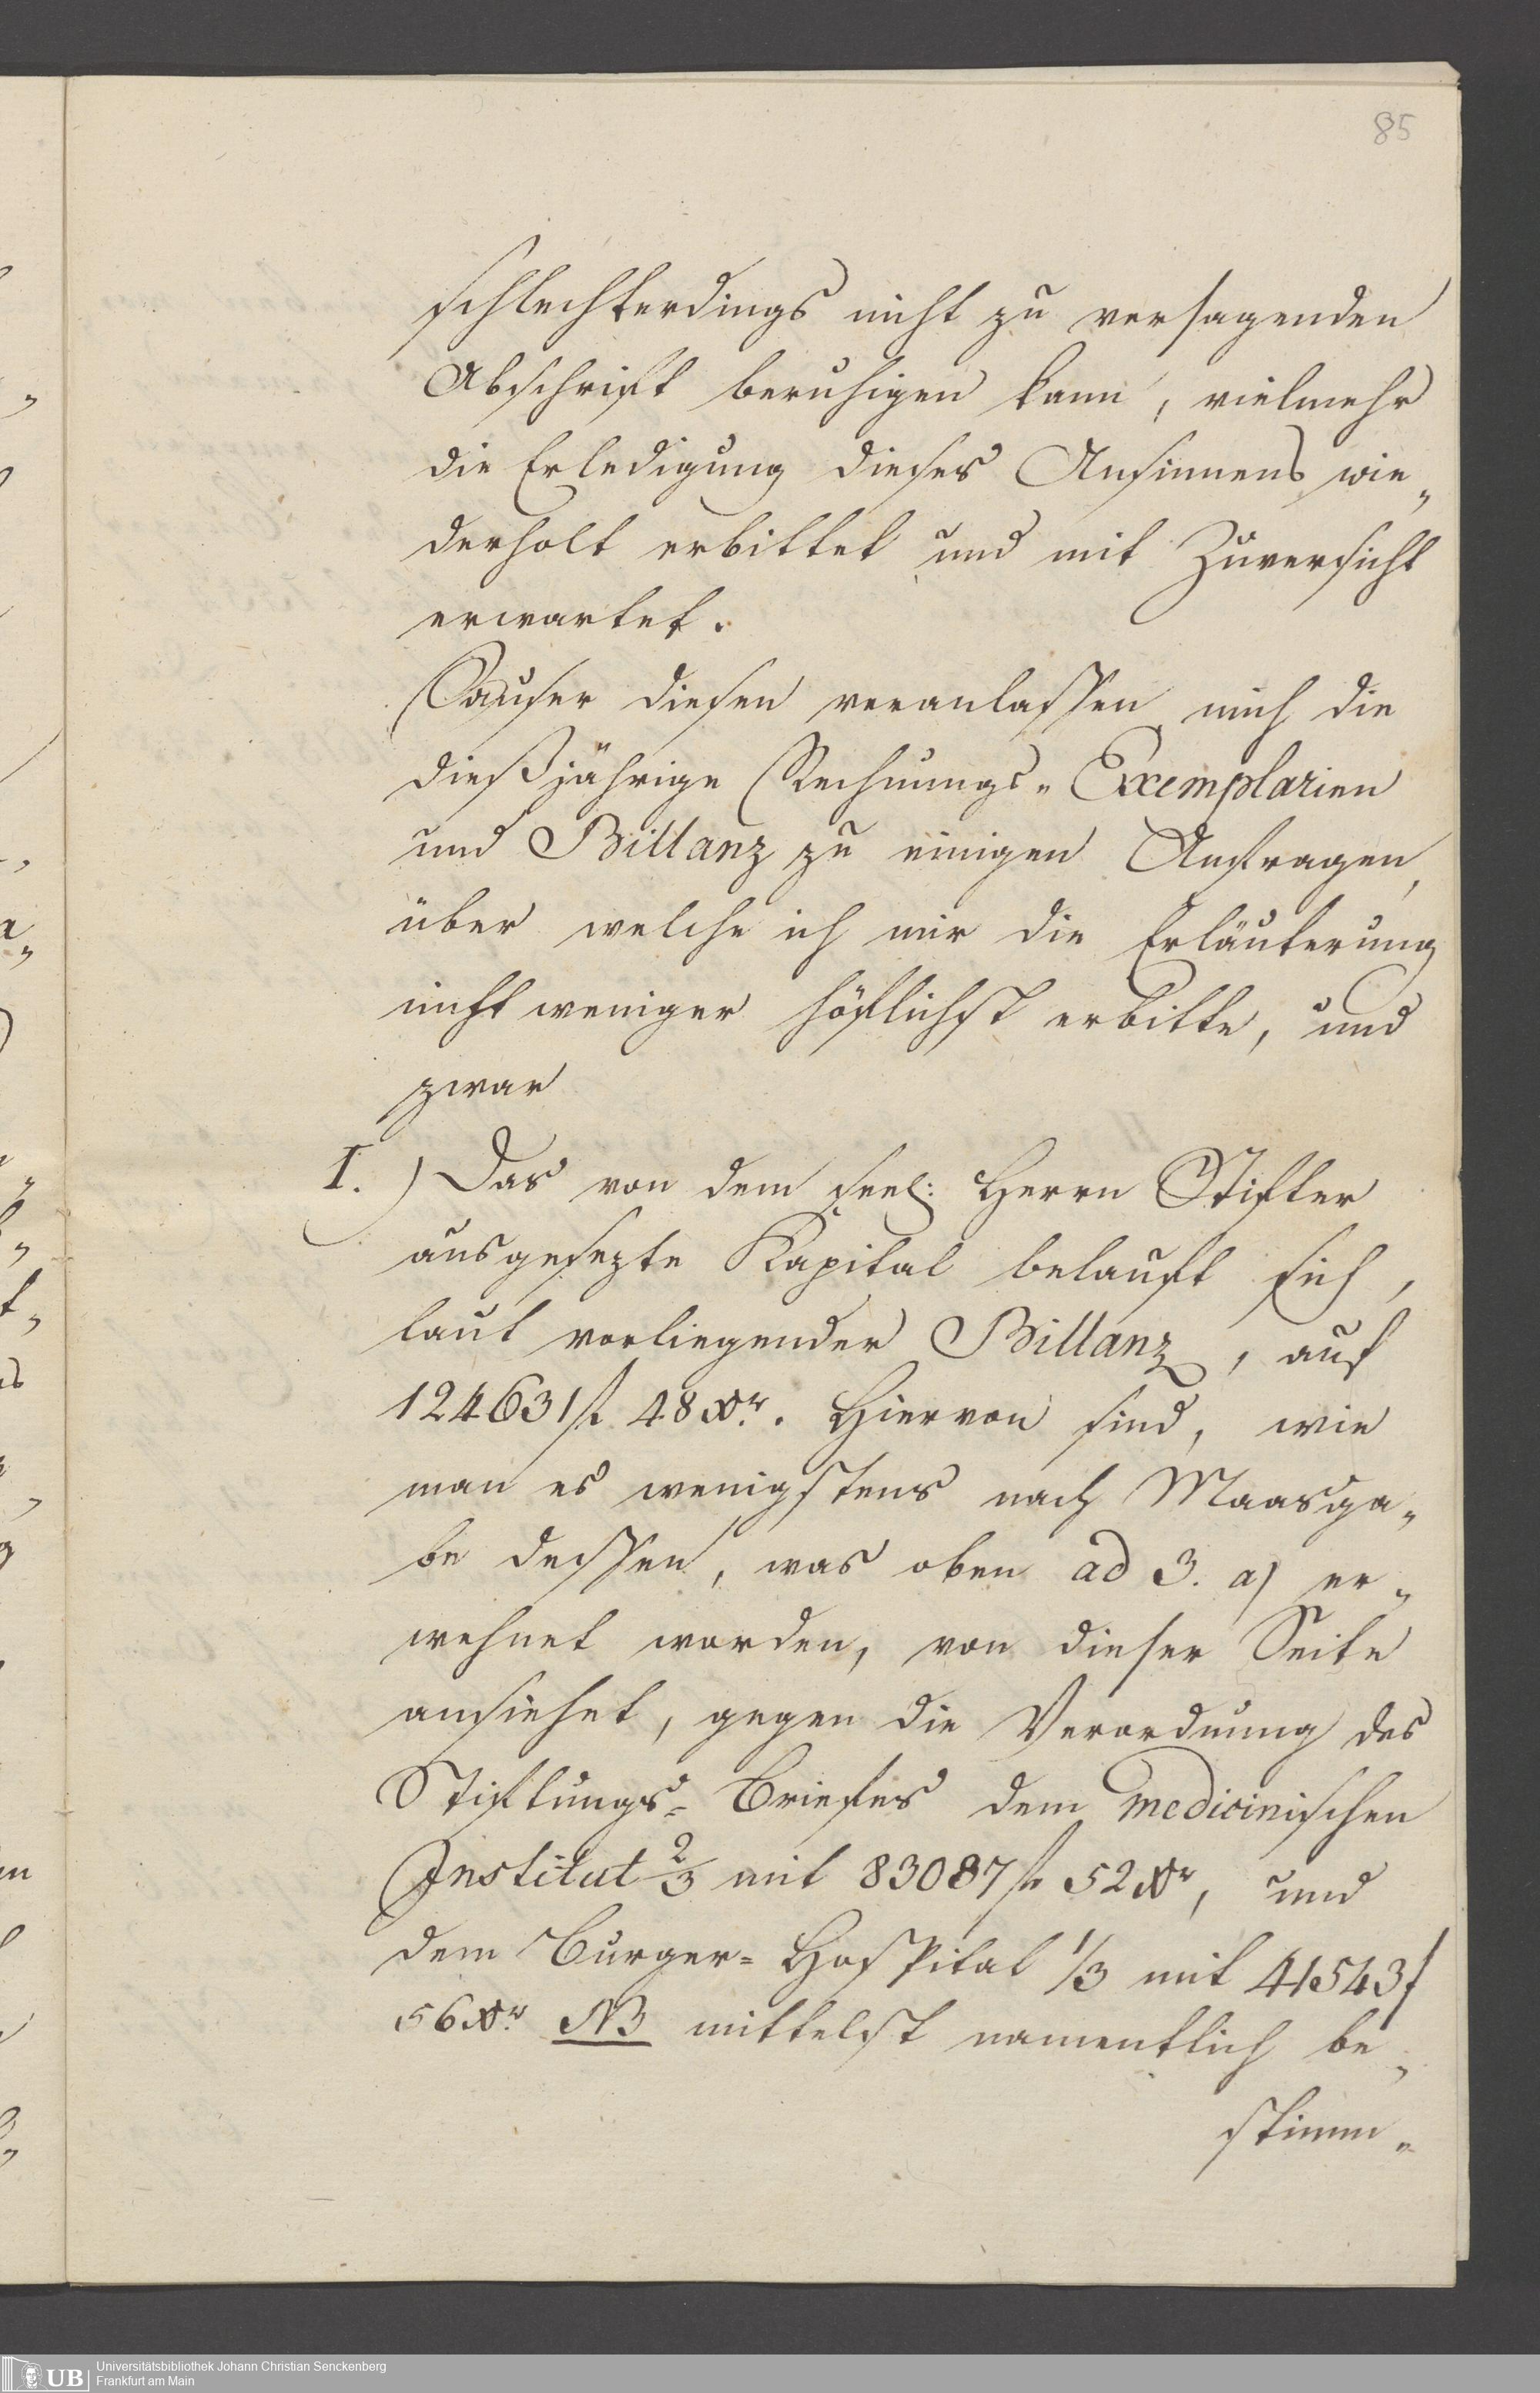 85
schlechterdings nicht zu versagenden
Abschrift beruhigen kann, vielmehr
die Erledigung dieses Ansinnens wie„
derholt erbittet und mit Zuversicht
erwartet.
Sauser diesen veranlassen mich die
dießjährige Rechnungs„ Exemplarien
und Billanz zu einigen Anfragen,
über welche ich mir die Erläuterung
nicht weniger höflichst erbitte, und
zwar
I.) Das von dem seel: Herrn Stifter
ausgesezte Kapital belauft sich,
laut vorliegender Billanz, auf
124631 fl 48 Xr. Hiervon sind, wie
man es wenigstens nach Maasga„
be dessen, was oben ad 3. a) er„
wehnet worden, von dieser Seite
ansiehet, gegen die Verordnung des
Stiftungs= Briefes dem medicinischen
Institut 2/3 mit 83087 fl 52 Xr, und
dem Burger= Hospital 1/3 mit 41543 f
56 Xr NB mittelst namentlich be„
stimm„
UB
Universitätsbibliothek Johann Christian Senckenberg
Frankfurt am Main